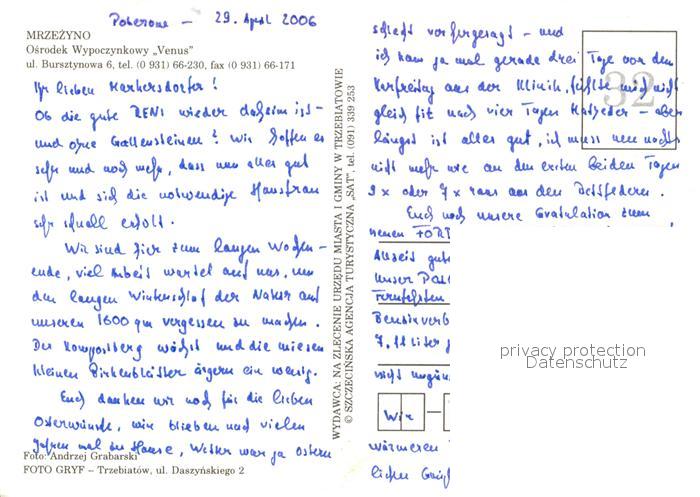 Pobierowo – 29. April 2006
MRZEŻYNO
Ośrodek Wypoczynkowy „Venus”
ul. Bursztynowa 6, tel. (0 931) 66-230, fax (0 931) 66-171
Ihr lieben Markersdorfer!
Ob die gute RENI wieder daheim ist -
und ohne Gallensteine? Wir hoffen es
sehr und noch mehr, dass nun alles gut
ist und sich die notwendige Hausfrau
sehr schnell erholt.
Wir sind hier zum langen Wochen-
ende, viel Arbeit wartet auf uns, um
den langen Winterschlaf der Natur auf
unseren 1600 qm vergessen zu machen.
Der Kompostberg wächst und die miesen
kleinen Birkenblätter ärgern ein wenig.
Euch danken wir noch für die lieben
Osterwünsche, wir blieben nach vielen
Jahren mal zu Hause, Wetter war ja Ostern
Foto: Andrzej Grabarski
FOTO GRYF – Trzebiatów, ul. Daszyńskiego 2
WYDAWCA: NA ZLECENIE URZĘDU MIASTA I GMINY W TRZEBIATOWIE
© SZCZECIŃSKA AGENCJA TURYSTYCZNA „SAT”, tel. (091) 339 253
schlecht vorhergesagt - und
ich kam ja mal gerade drei Tage vor dem
Karfreitag aus der Klinik, fühlte mich nicht
gleich fit nach vier Tagen Katheder – aber
längst ist alles gut, ich muss nun nachts
nicht mehr wie an den ersten beiden Tagen
9x oder 7x raus aus den Bettfedern.
32
Euch noch unsere Gratulation zum
neuen FORD
Anseit gut
unser
Fernfahrten
Benzinverb
7,11 Liter
nicht
Wir –
wärmeren
liebe
privacy protection
Datenschutz